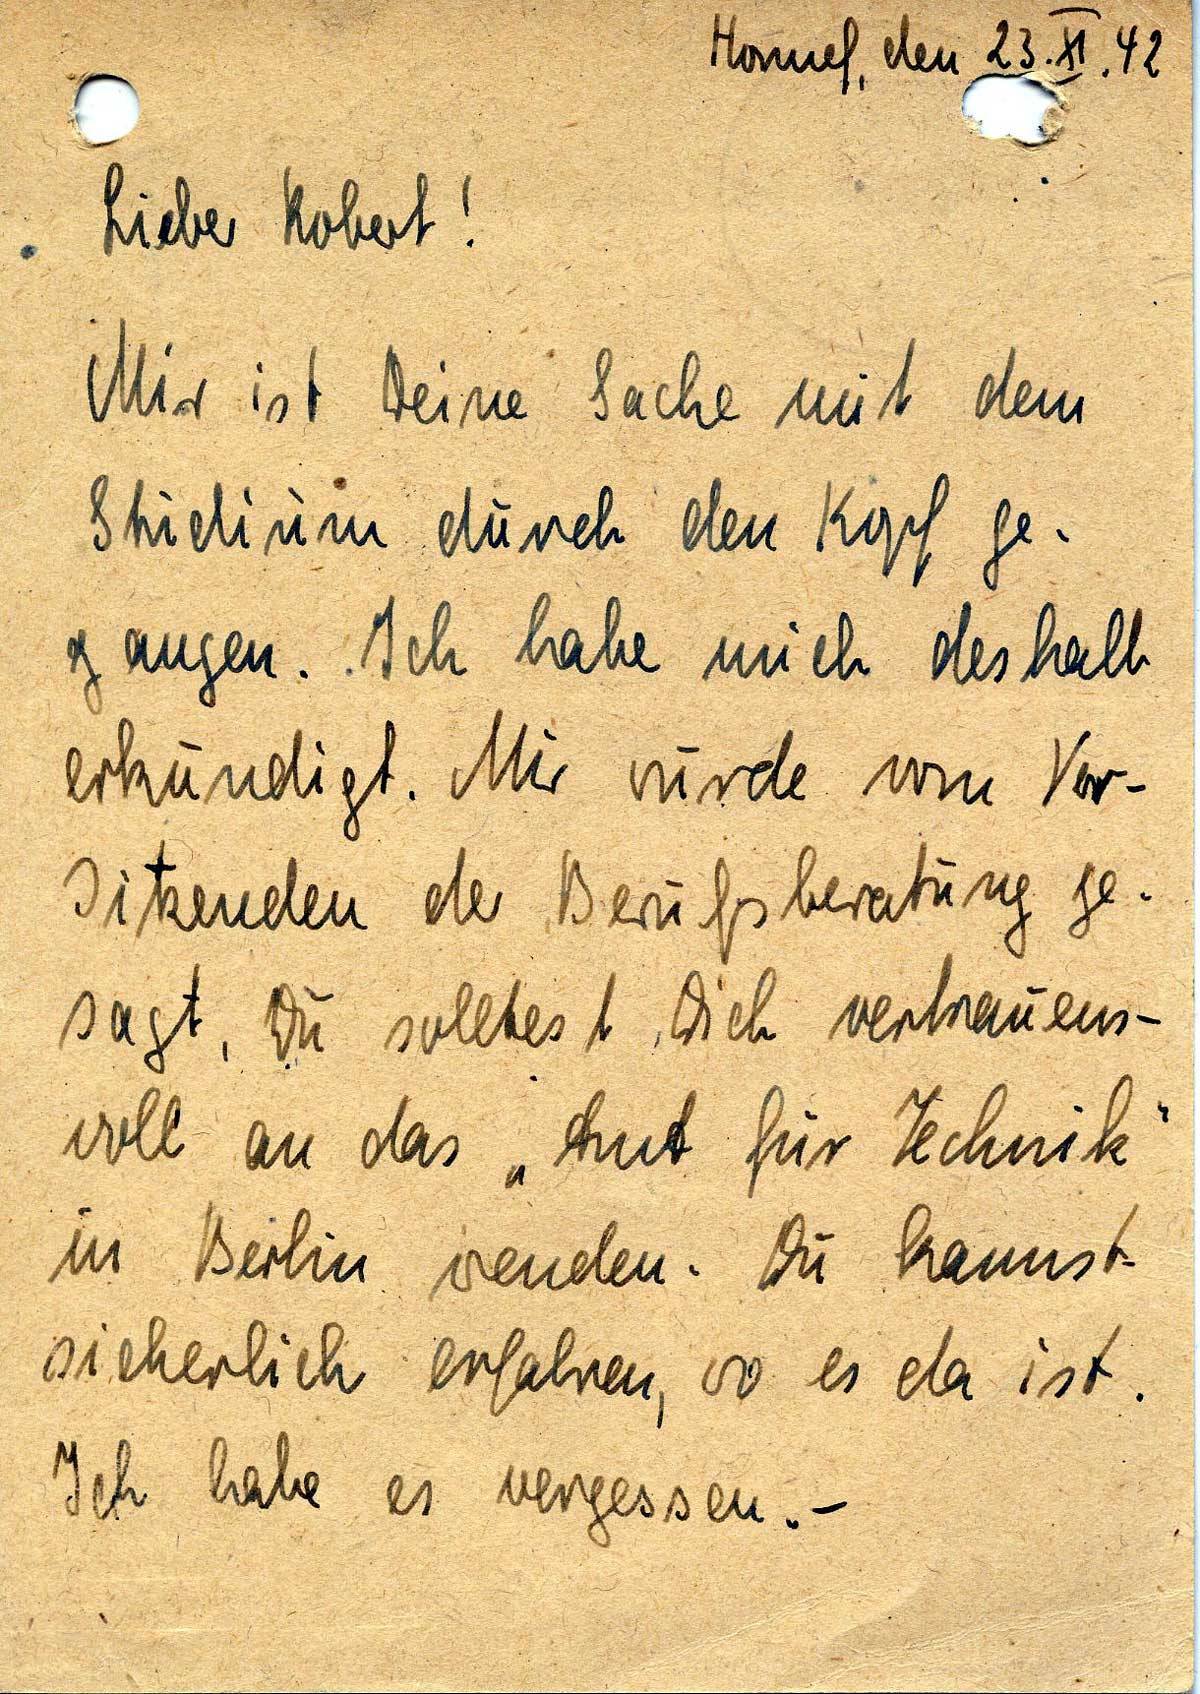 Honnef, den 23.XI.42
Lieber Robert!
Mir ist Deine Sache mit dem
Studium durch den Kopf ge-
gangen. Ich habe mich deshalb
erkundigt. Mir wurde vom Vor-
sitzenden der Berufsberatung ge-
sagt, Du solltest Dich vertrauens-
voll an das „Amt für Technik“
in Berlin wenden. Du kannst
sicherlich erfahren, wo es da ist.
Ich habe es vergessen.–